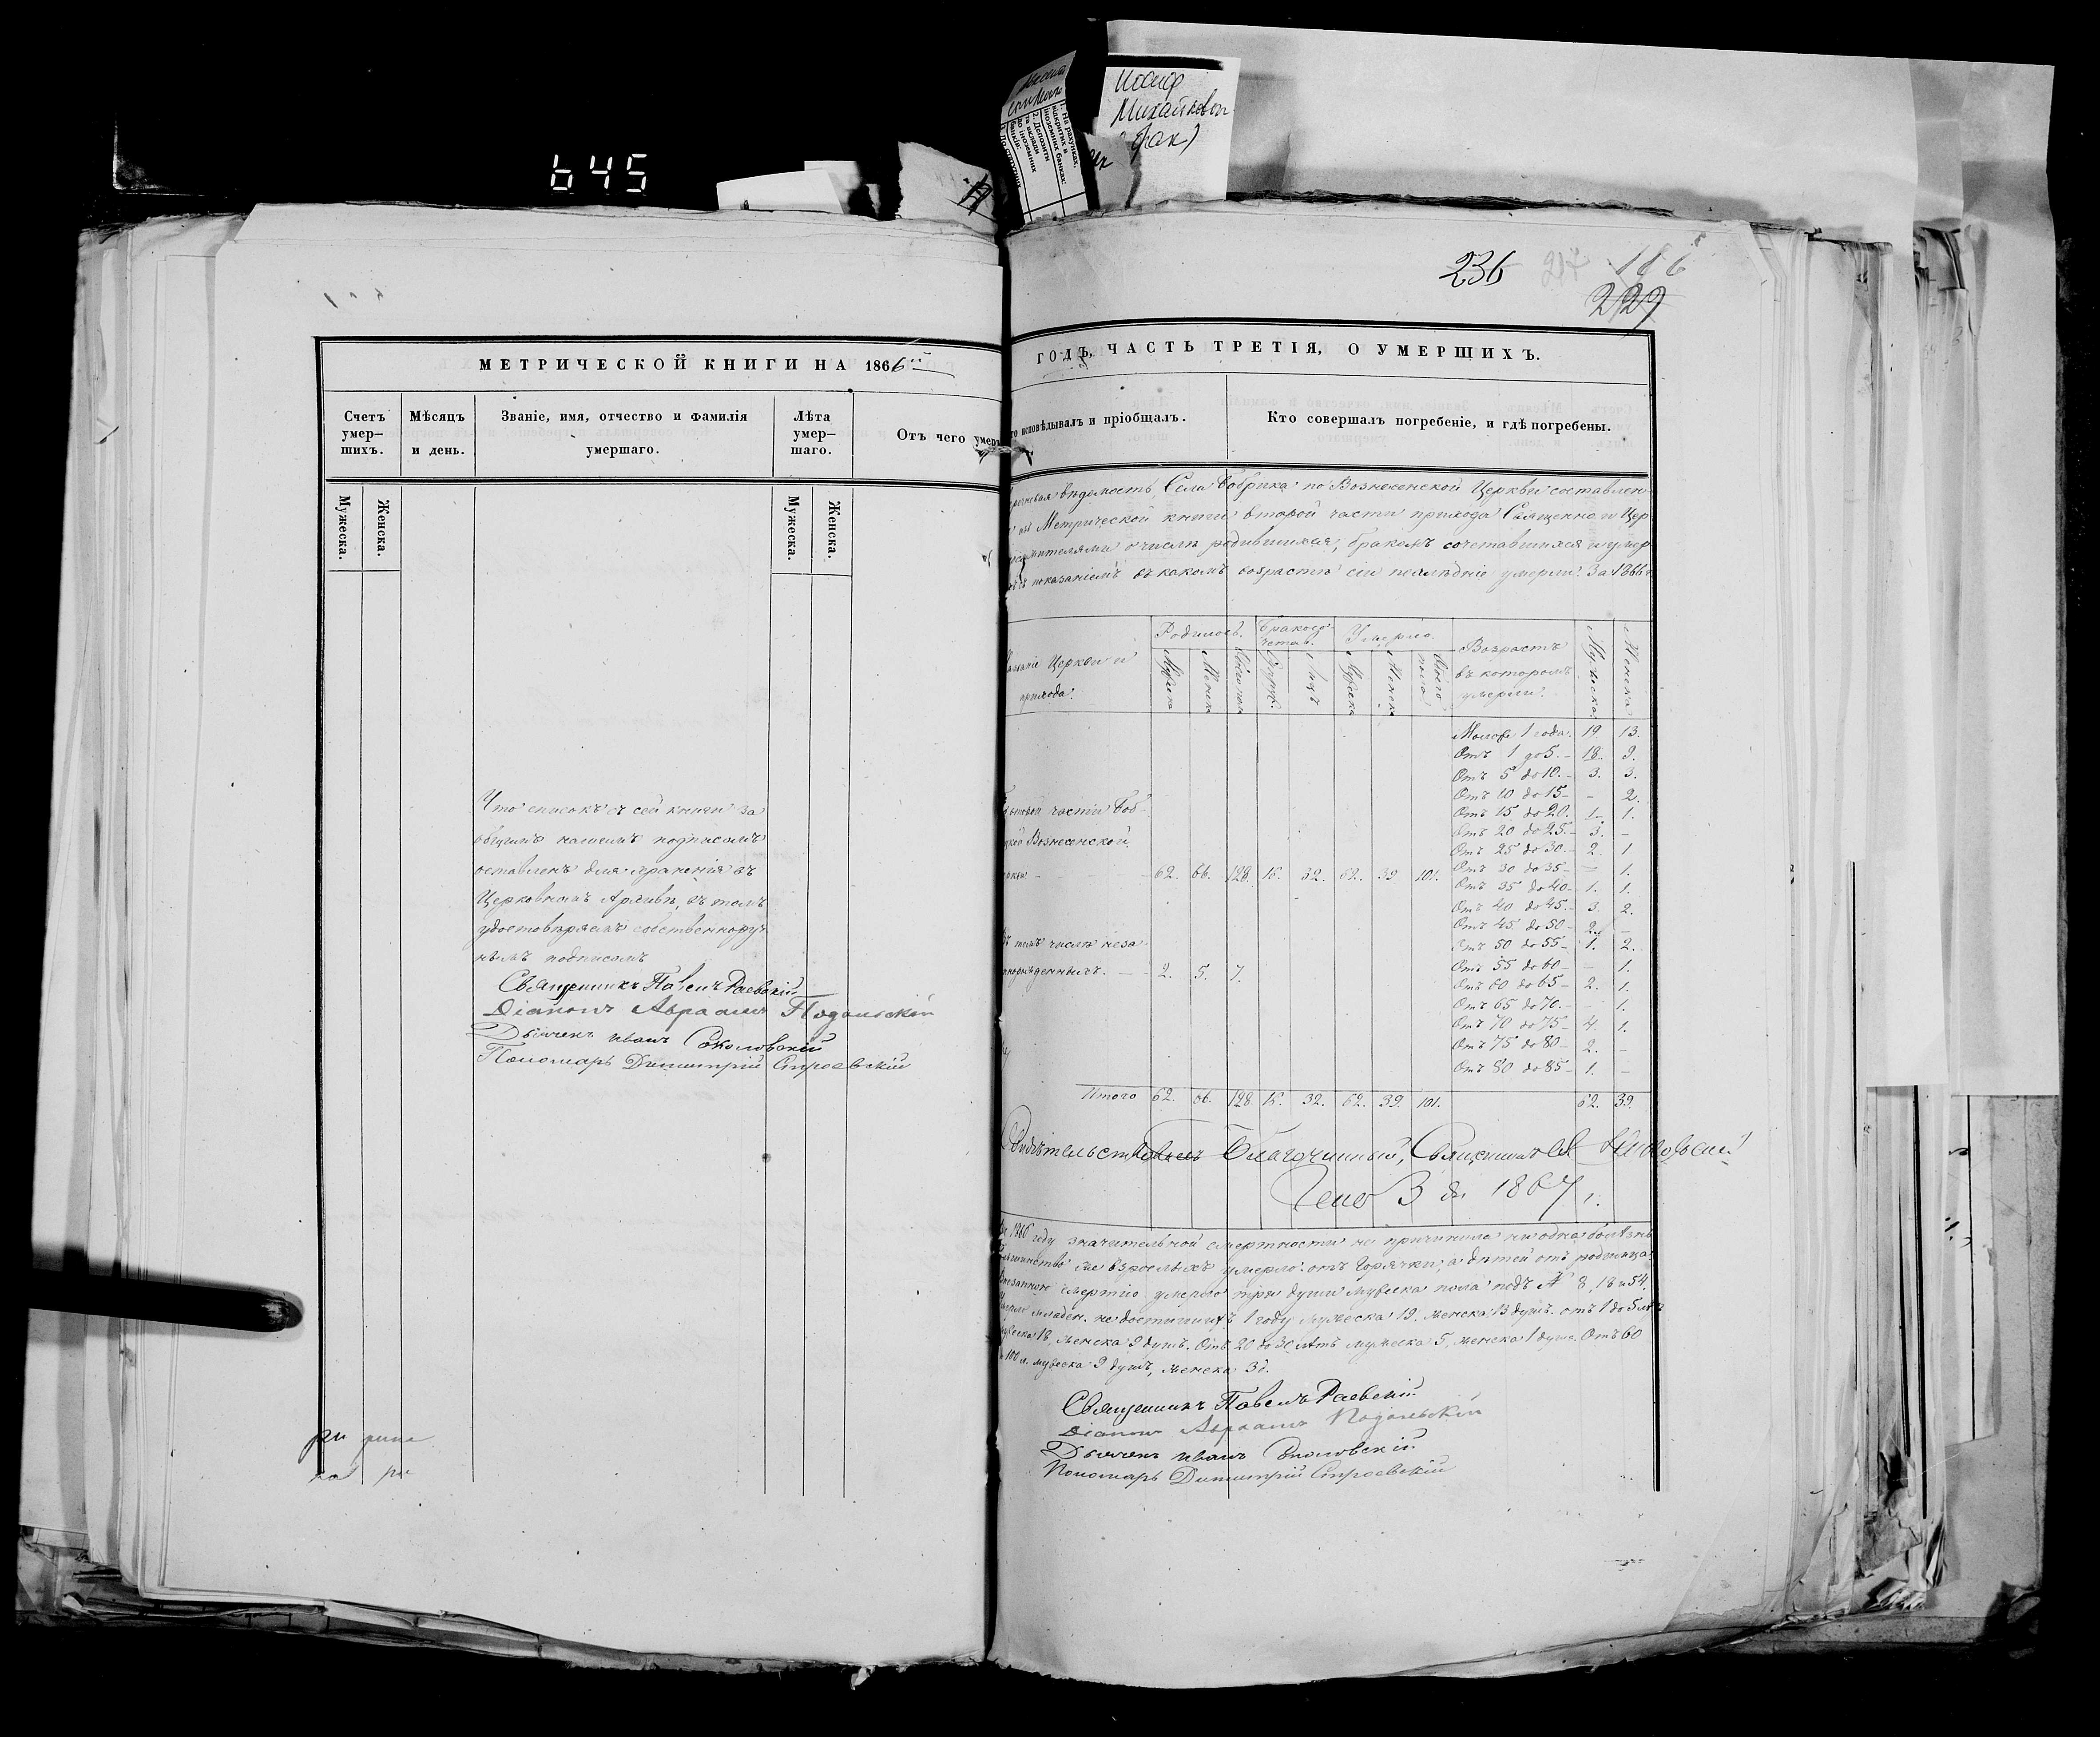 645
Иосиф
Михайлович
236
229
МЕТРИЧЕСКОЙ КНИГИ НА 1866
ГОДЪ, ЧАСТЬ ТРЕТІЯ, О УМЕРШИХЪ.
Счетъ умер-шихъ.
Мѣсяцъ и день.
Званіе, имя, отчество и фамилія умершаго.
Лѣта умер-шаго.
Отъ чего умеръ
исповѣдывалъ и пріобщалъ.
Кто совершалъ погребеніе, и гдѣ погребены.
Мужеска.
Женска.
Мужеска.
Женска.
Что списокъ съ сей книги за
общимъ нашемъ подписомъ
оставленъ для храненія въ
Церковномъ Архивѣ, въ томъ
удостовѣряемъ собственноруч
нымъ подписомъ
Священникъ Павелъ Раевскій
Діаконъ Авраамъ Подольскій
Дьячекъ Иванъ Соколовскій
Пономарь Димитрій Строевскій
вѣдомость Села Бобрика по Вознесенской Церкви составлен
изъ Метрической книги второй части прихода Священно и Цер
о числѣ родившихся, бракомъ сочетавшихся и умер
показаніемъ въ какомъ возрастѣ сіи послѣдніе умерли. За 1866 г.
Родилось.
Бракосо-четав.
Умерло.
Возрастъ въ которомъ умерли.
Мужеска.
Женска.
Церкви и прихода.
Мужеска
Женска
Лицъ
Мужеска
Женска
Всего пола.
Моложе 1 года. 19. 13.
Отъ 1 до 5. – 18. 9.
Отъ 5 до 10. – 3. 3.
Отъ 10 до 15 – – 2.
Отъ 15 до 20. 1. 1.
Отъ 20 до 25. – 3. –
Отъ 25 до 30. – 2. 1
Отъ 30 до 35 – – 1.
Отъ 35 до 40 – 1. 1.
Отъ 40 до 45. – 3. 2.
Отъ 45 до 50 – 2. –
Отъ 50 до 55 – 1. 2.
Отъ 55 до 60 – – 1.
Отъ 60 до 65 – 2. 1.
Отъ 65 до 70. – – 1.
Отъ 70 до 75 – 4. 1.
Отъ 75 до 80 – 2. –
Отъ 80 до 85 – 1. –
части Боб
Вознесенской
62. 66. 128. 16. 32. 62. 39. 101.
томъ числѣ неза
рожденныхъ. – – 2. 5. 7.
Итого 62. 66. 128. 16. 32. 62. 39. 101. 62. 39.
Свидѣтельствовалъ Благочинный, Священникъ
3 дн 1867 г.
1866 году значительной смертности не причинила ни одна болѣзнь
же взрослыхъ умерло отъ горячки, а дѣтей отъ родимца.
смертію умерло три души мужеска пола подъ № 8, 18 и 54.
младен. не достигшихъ 1 году мужеска 19. женска 13 душъ. отъ 1 до 5 лѣт
18, женска 9 душъ. Отъ 20 до 30 лѣтъ мужеска 5, женска 1 душа. Отъ 60
100 л. мужеска 9 душъ, женска 3 д.
Священникъ Павелъ Раевскій
Діаконъ Авраамъ Подольскій
Дьячекъ Иванъ Соколовскій
Пономарь Димитрій Строевскій